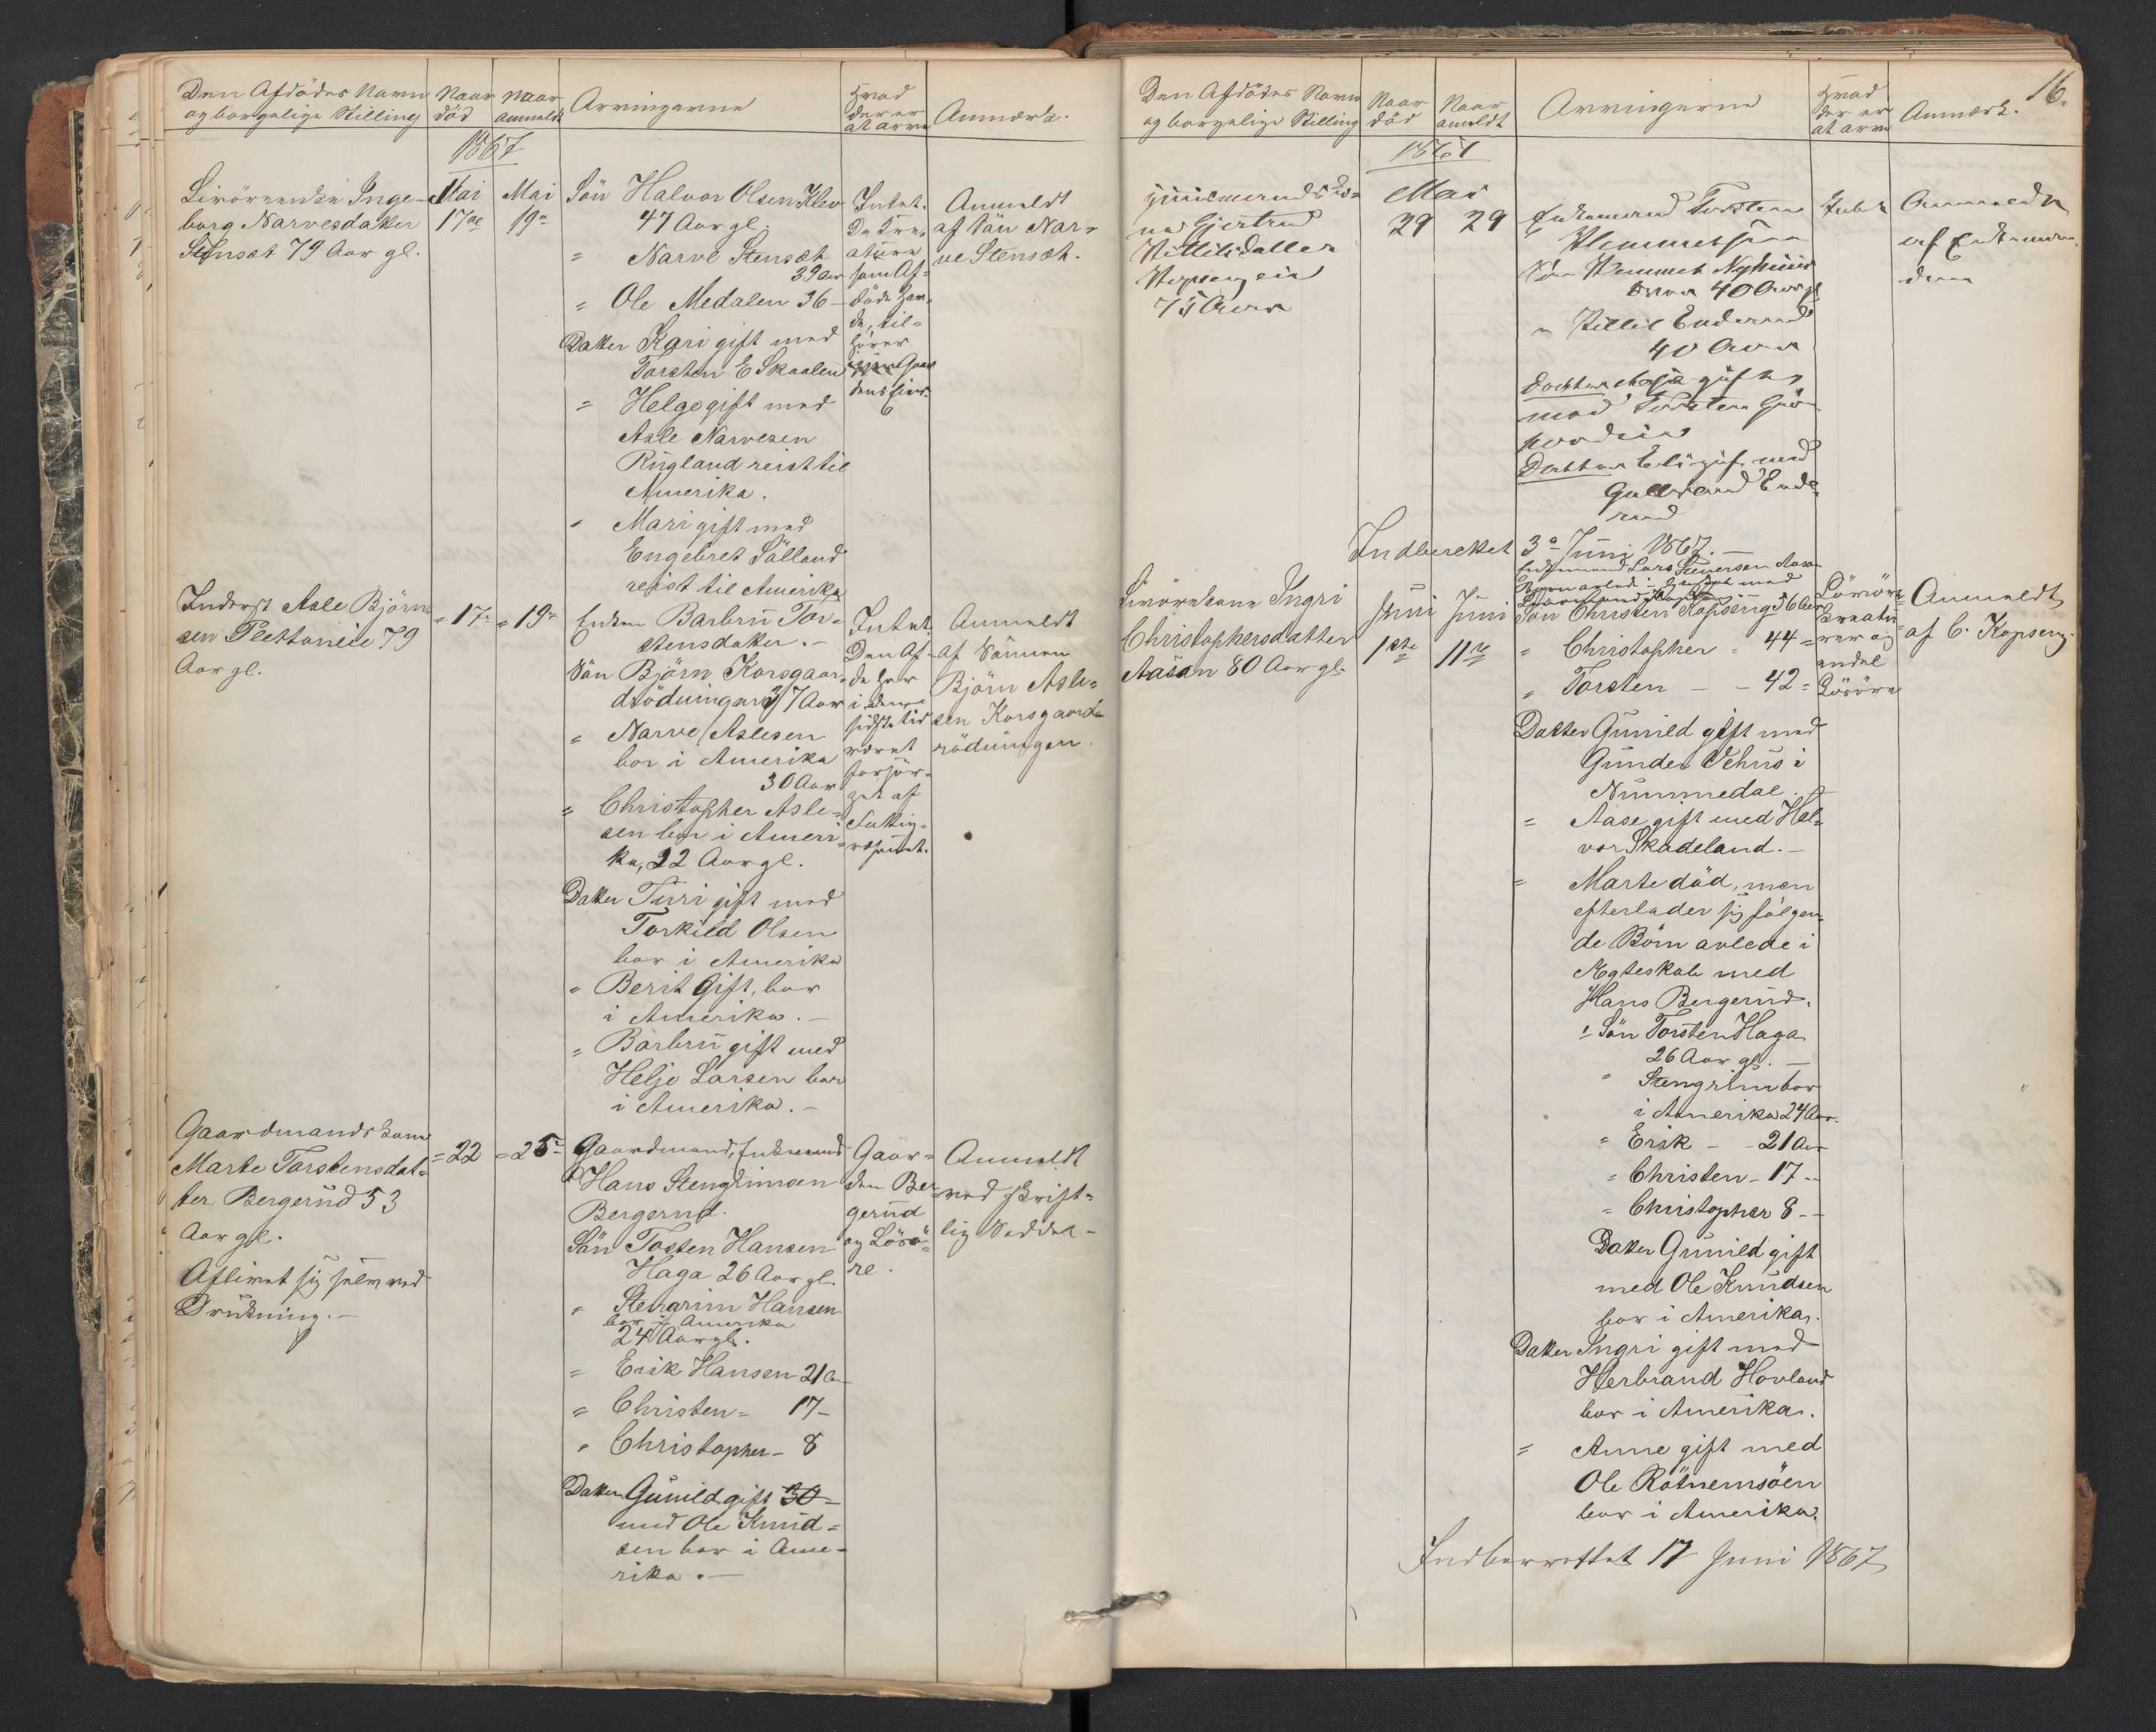 Den Afdödes Navn og borgelige Stilling
Naar död
Naar anmeldt
Arvingerne
Hvad der er at arve
Anmærk.
1867
Livörenken Inge-
borg Narvesdatter
Stensæt 79 Aar gl.
Mai
17de
Mai
19de
Sön Halvor Olsen Klev
47 Aar gl.
" Narve Stensæt
39 Aar
" Ole Medalen 36 –
Datter Kari gift med
Torsten E Skaalen
= Helge gift med
Asle Narvesen
Rugland reist til
Amerika.
" Mari gift med
Engebret Sölland
reist til Amerika
Intet.
De Krea-
turer
som Af-
döde hav-
de, til-
hörer
Gaar-
dens Eier.
Anmeldt
af Sön Nar-
ve Stensæt.
Inderst Asle Björn-
sen Plettoneie 79
Aar gl.
= 17-
= 19-
Enken Barbru Tor-
stensdatter. –
Sön Björn Korsgaar-
drödningen 37 Aar
" Narve Aslesen
bor i Amerika
30 Aar
= Christopher Asle-
sen bor i Ameri-
ka, 22 Aar gl.
Datter Turi gift med
Torkild Olsen
bor i Amerika
" Berit Gift, bor
i Amerika. –
" Barbru gift med
Helje Larsen bor
i Amerika. –
Intet.
Den Af-
de har
i den
sidste tid
været
forsör-
get af
Fattig-
væsenet.
Anmeldt
af Sönnen
Björn Asle-
sen Korsgaard-
rödningen.
Gaardmandskone
Marte Torstensdat-
ter Bergerud 53
Aar gl.
Aflivet sig selv ved
Drukning. –
= 22
= 25-
Gaardmand, Enkemand
Hans Stengrimsen
Bergerud.
Sön Tosten Hansen
Haga 26 Aar gl.
" Stengrim Hansen
bor i Amerika
24 Aar gl.
= Erik Hansen 21 Aar
= Christen = 17 –
" Christopher – 8
Datter Gunild gift 30 –
med Ole Knud-
sen bor i Ame-
rika. –
Gaar-
den Ber-
gerud
og Lösö-
re.
Anmeldt
ved skrift-
lig Seddel –
16.
Den Afdödes Navn og borgelige Stilling
Naar död
Naar anmeldt
Arvingerne
Hvad der er at arve
Anmærk.
1867
Gjertrud
Kittilsdatter
75 Aar
Mai
29
29
Enkemand Torsten
Hemmetsen
Sön Hemmet Nyhuus
40 Aar gl
" Kittil Enderud
40 Aar
Datter gift
med Torsten
Datter Eli gift med
Gulbrand Ende-
rud
Intet
Anmeldt
af Enkeman-
den
Indberettet 3de Juni 1867. –
Livörskone Ingri
Christophersdatter
Aasan 80 Aar gl.
Juni
1ste
Juni
11te
Enkemand Lars Steversen Aasan
Sön Christen Kopseng 56 Aar
" Christopher = 44 =
" Torsten – – 42 =
Datter Gunild gift med
Gunder Vehus i
Nummedal. –
= Aase gift med Hal-
vor Skadeland. –
= Marte död, men
efterlader sig fölgen-
de Börn avlede i
Ægteskab med
Hans Bergerud.
! Sön Torsten Haga
26 Aar gl. –
" Stengrim bor
i Amerika 24 Aar.
" Erik – – 21 Aar
= Christen – 17 --
= Christopher 8 --
Datter Gunild gift
med Ole Knudsen
bor i Amerika.
Datter Ingri gift med
Herbrand Hovland
bor i Amerika.
= Anne gift med
Ole Rötnemsöen
bor i Amerika.
Kreatu-
rer og
andel
Lösöre
Anmeldt
af C. Kopseng.
Indberettet 17 Juni 1867